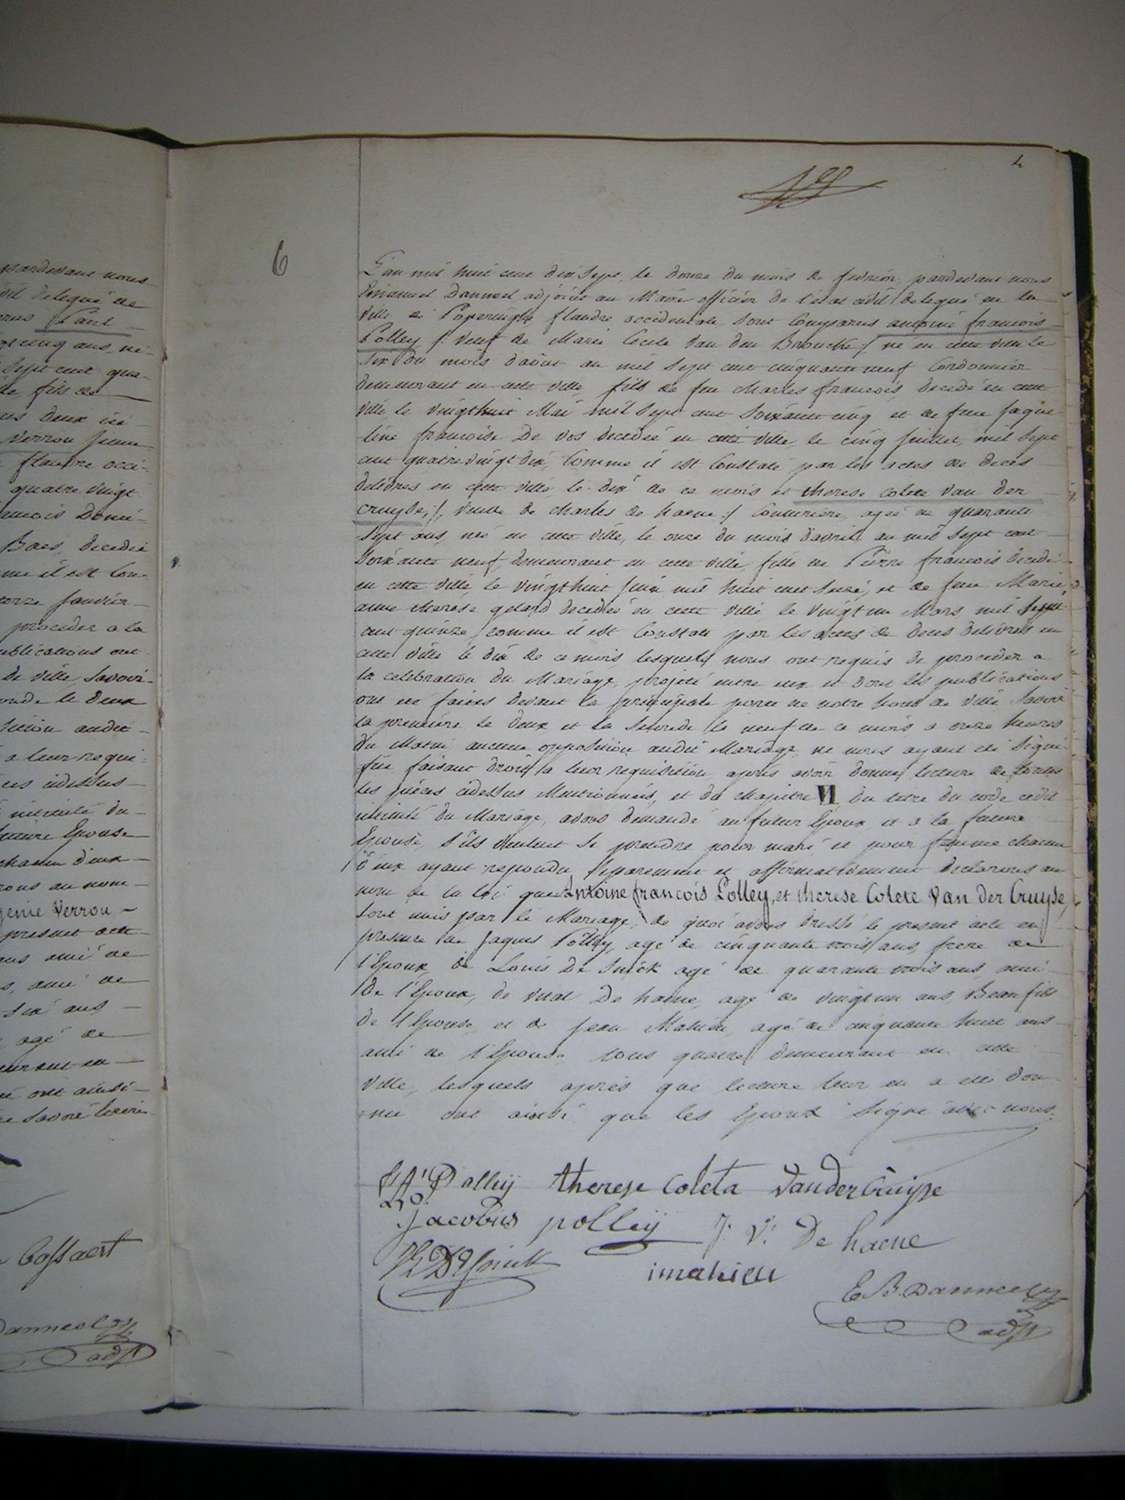 4
6
L'an mil huit cent dix sept, le douze du mois de fevrier, pardevant nous
Emanuel Danneel adjoint au Maire officier de l'etat civil delegué de la
ville de Poperinghe flandre occidentale sont Comparus antoine francois
Polley /: veuf de Marie Cecile Van den Broucke :/ né en cette ville le
six du mois d'aout an mil sept cent cinquante neuf Cordonnier
demeurant en cette ville, fils de feu Charles francois decedé en cette
ville le vingthuit Mai mil sept cent soixante cinq et de feue jaque
line francoise De vos decedée en cette ville le cinq juillet mil sept
cent quatre vingt dix, Comme il est Constaté par les actes de decès
delivrés en cette ville le dix de ce mois et therese colete van der
cruyse, /: veuve de charles de haene :/ Couturière, agée de quarante
sept ans, née en cette ville, le onze du mois d'avril an mil sept cent
soixante neuf demeurant en cette ville, fille de Pierre francois decedé
en cette ville le vingthuit juin mil huit cent seize, et de feue Marie
anne therese gelard decedée en cette ville le vingt un Mars mil sept
cent quinze, comme il est Constaté par les actes de deces delivrés en
cette ville le dix de ce mois lesquels nous ont requis de proceder a
la celebration du Mariage projeté entre eux et dont les publications
ont été faites devant la principale porte de notre hotel de ville Savoir
la premiere le deux et la seconde le neuf de ce mois a onze heures
du Matin aucune opposition audit Mariage ne nous ayant été Signi-
fiée faisant droit a leur requisition, apres avoir donné lecture de toutes
les pièces cidessus Mentionnées, et du chapitre VI du titre du code civil
intitulé du Mariage, avons demandé au futur Epoux et a la future
Epouse, s'ils veulent se prendre pour mari et pour femme chacun
d'eux ayant repondu separement et affirmativement declarons au
nom de la loi que Antoine françois Polley, et therese Colete Van der Cruyse,
sont unis par le Mariage, de quoi avons dressé le present acte en
presence de Jaques Polley, agé de cinquante trois ans, frere de
l'Epoux, de Louis De Snick agé de quarante trois ans ami
de l'Epoux, de vital De haene, agé de vingt un ans Beau fils
de l'Epouse, et de jean Mahieu, agé de cinquante huit ans
ami de l'Epouse tous quatre demeurant en cette
ville, lesquels après que lecture leur en a été don
née ont ainsi que les Epoux signé avec nous.
Polleij therese Coleta Vander Cruijse
jacobus polleij J. V. De haene
imahieu
E B Danneel
adjt
pardevant nous
civil delegué de
Paul
sept cent qua-
de fils de
Verrou
flandre occi-
quatre vingt
Baes, decedée
me il est Con-
proceder a la
ublications ont
de ville savoir
onde le deux
sition audit
a leur requi-
chacun d'eux
Verrou
present acte
ami de
six ans
agé de
Cossaert
Danneel
adjt